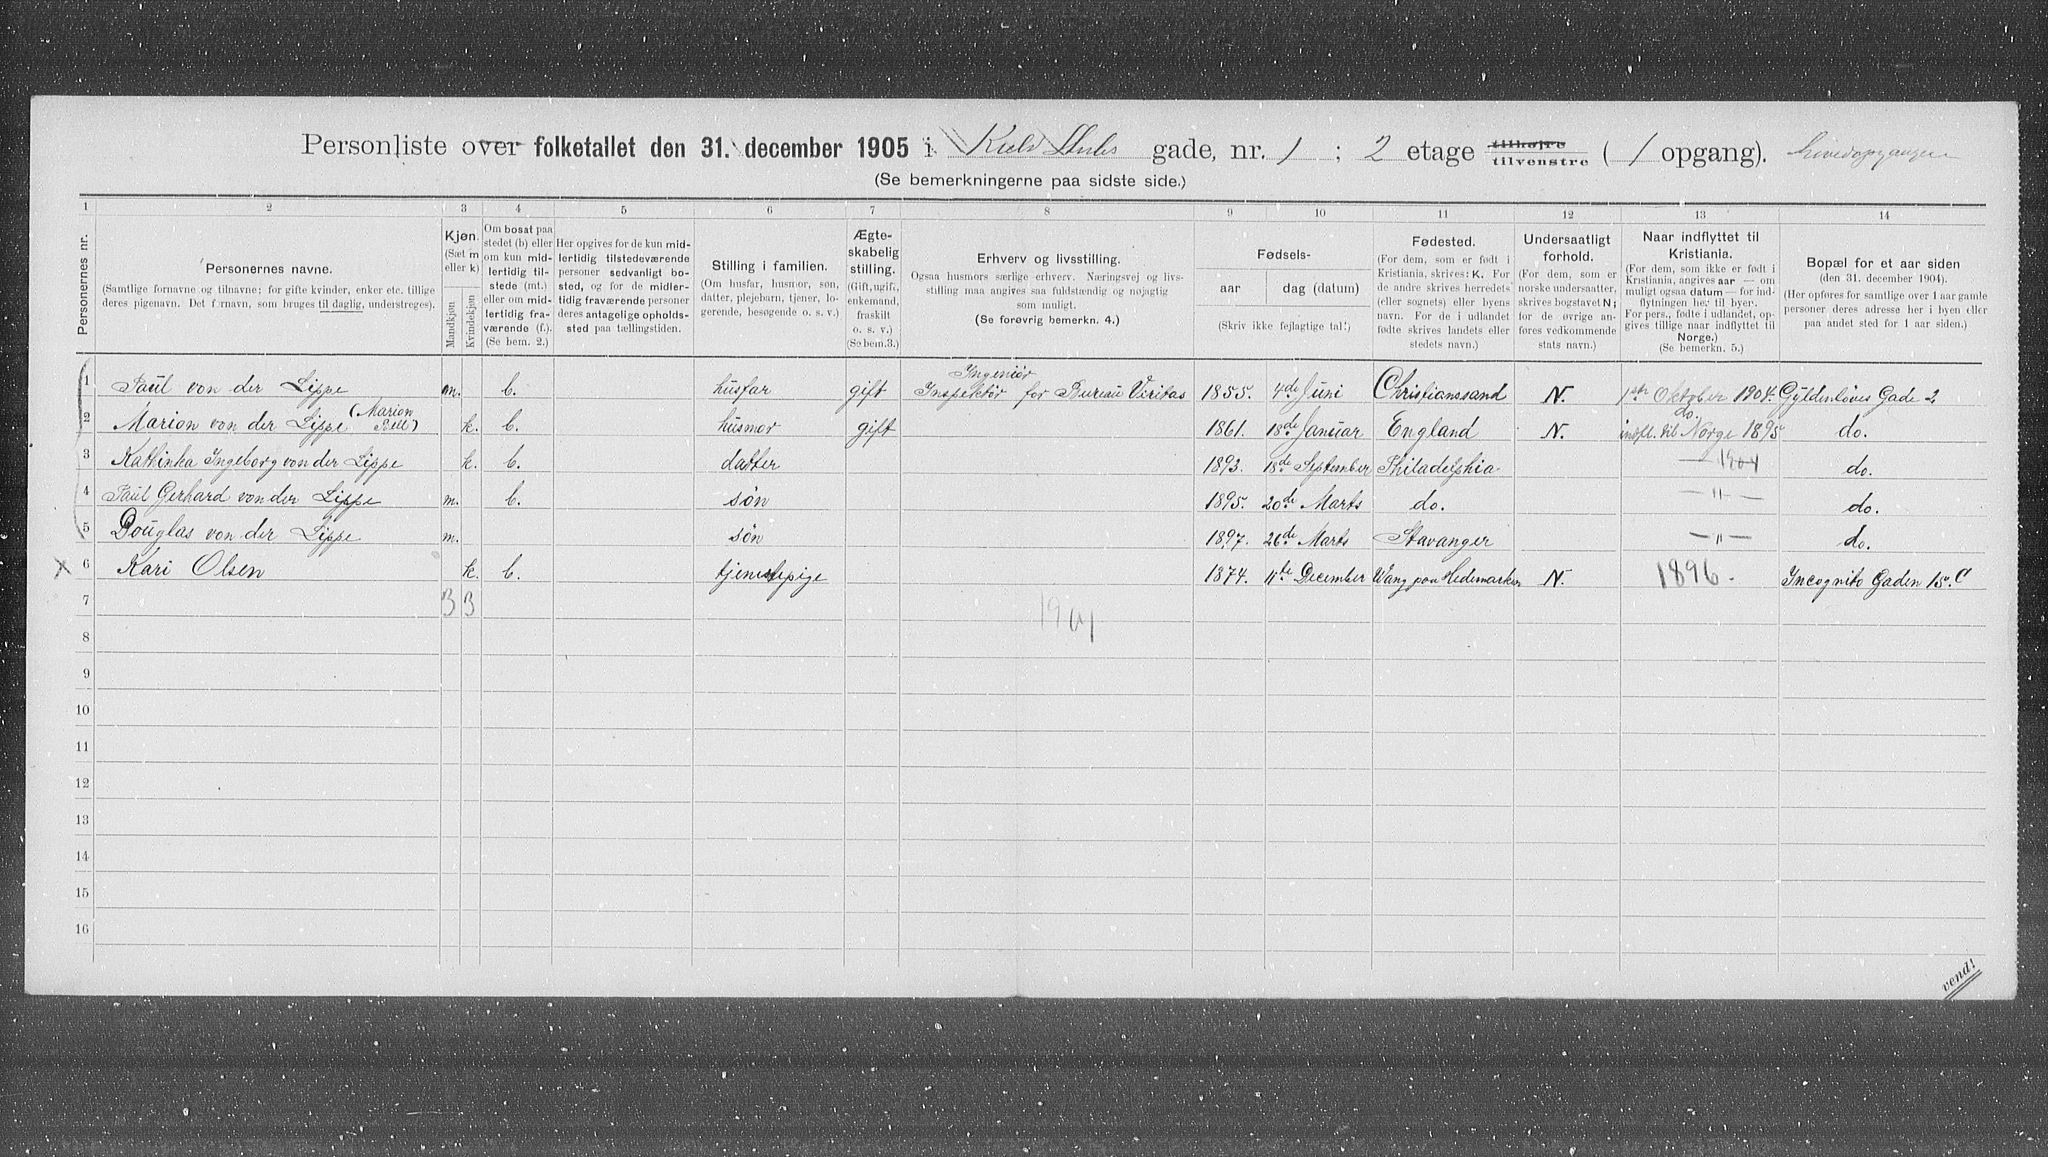 Personliste over folketallet den 31. december 1905 i Kield Stubs gade, nr. 1 ; 2 etage tilhøjre tilvenstre ( 1 opgang). hovedopgangen
(Se bemerkningerne paa sidste side.)
1 2 3 4 5 6 7 8 9 10 11 12 13 14
Personernes nr.
Personernes navne.
(Samtlige fornavne og tilnavne; for gifte kvinder, enker etc. tillige
deres pigenavn. Det fornavn, som bruges til daglig, understreges).
Kjøn.
(Sæt m
eller k)
Mandkjøn
Kvindekjøn
Om bosat paa
stedet (b) eller
om kun mid-
lertidig til-
stede (mt.)
eller om mid-
lertidig fra-
værende (f.).
(Se bem. 2.)
Her opgives for de kun mid-
lertidig tilstedeværende
personer sedvanligt bo-
sted, og for de midler-
tidig fraværende personer
deres antagelige opholds-
sted paa tællingstiden.
Stilling i familien.
(Om husfar, husmor, søn,
datter, plejebarn, tjener, lo-
gerende, besøgende o. s. v.)
Ægte-
skabelig
stilling.
(Gift, ugift,
enkemand,
fraskilt
o. s. v.)
(Se bem. 3.)
Erhverv og livsstilling.
Ogsaa husmors særlige erhverv. Næringsvej og livs-
stilling maa angives saa fuldstændig og nøjagtig
som muligt.
(Se forøvrig bemerkn. 4.)
Fødsels-
aar dag (datum)
(Skriv ikke fejlagtige tal!)
Fødested.
(For dem, som er født i
Kristiania, skrives: K. For
de andre skrives herredets
(eller sognets) eller byens
navn. For de i udlandet
fødte skrives landets eller
stedets navn.)
Undersaatligt
forhold.
(For dem, som er
norske undersaatter,
skrives bogstavet N;
for de øvrige an-
føres vedkommende
stats navn.)
Naar indflyttet til
Kristiania.
(For dem, som ikke er født i
Kristiania, angives aar — om
muligt ogsaa datum — for ind-
flytningen her til byen.
For pers., fødte i udlandet, op-
gives tillige naar indflyttet til
Norge.)
(Se bemerkn. 5.)
Bopæl for et aar siden
(den 31. december 1904).
(Her opføres for samtlige over 1 aar gamle
personer deres adresse her i byen eller
paa andet sted for 1 aar siden.)
1 Paul von der Lippe m. b. husfar gift Ingeniør Inspektør for Bureau Veritas 1855. 4de Juni Christianssand N. 1ste Oktober 1904. Gyldenløves Gade 2
2 Marion von der Lippe (Marion Bell) k. b. husmor gift 1861. 18de Januar England N. do. indfl. til Norge 1895 do.
3 Kathinka Ingeborg von der Lippe k. b. datter 1893. 18de September Philadelphia — 1904 do.
4 Paul Gerhard von der Lippe m. b. søn 1895. 20de Marts do. — " — do.
5 Douglas von der Lippe m. søn 1897. 26de Marts Stavanger — " — do.
x 6 Kari Olsen k. b. tjenestepige 1874. 11te December Vang paa Hedemarken N. 1896. Incognito Gaden 15. C
7 3 3
8
9
10
11
12
13
14
15
16
vend!